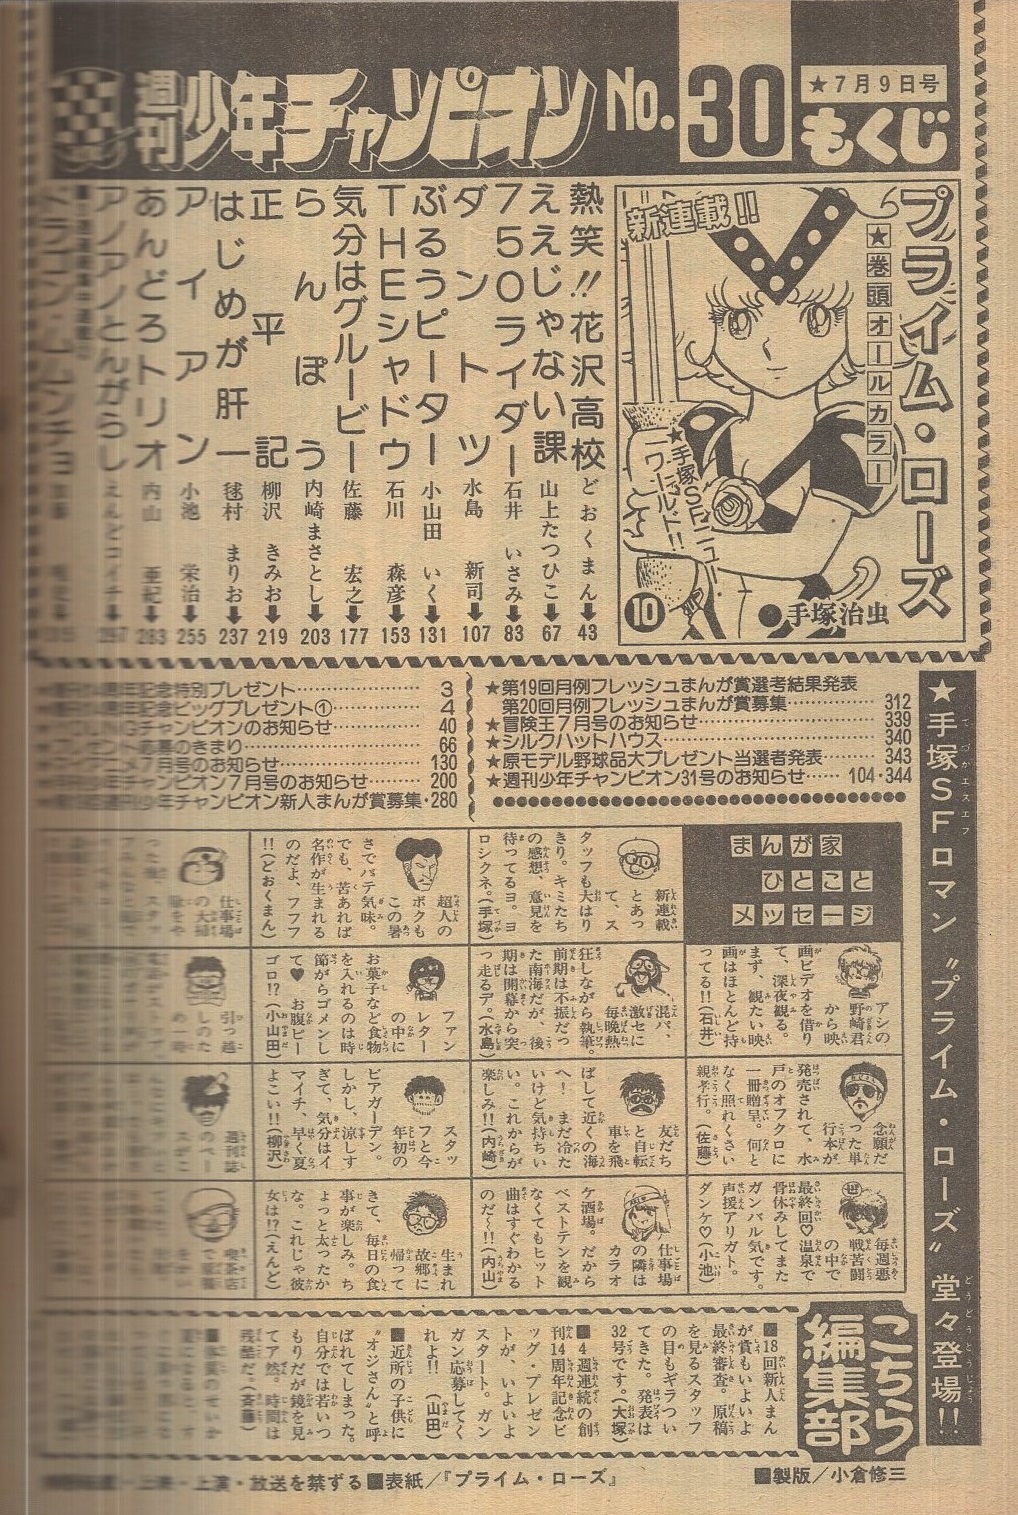 週刊少年チャンピオン No.30
★7月9日号
もくじ
プライム・ローズ
★巻頭オールカラー
新連載!!
★手塚SFニューワールド!!
●手塚治虫
10
熱笑!!花沢高校 どおくまん 43
ええじゃない課 山上たつひこ 67
750ライダー 石井いさみ 83
ダントツ 水島新司 107
ぶるうピーター 小山田いく 131
THEシャドウ 石川森彦 153
気分はグルービー 佐藤宏之 177
らんぽう 内崎まさとし 203
正平記 柳沢きみお 219
はじめが肝一 毬村まりお 237
アイアン 小池栄治 255
あんどろトリオ 内山亜紀 283
アノアノとんがらし えんどコイチ 297
★手塚SFロマン〝プライム・ローズ〟堂々登場!!
年記念特別プレゼント 3
記念ビッグプレゼント① 4
Gチャンピオンのお知らせ 40
応募のきまり 66
アニメ7月号のお知らせ 130
月刊少年チャンピオン7月号のお知らせ 200
週刊少年チャンピオン新人まんが賞募集 280
★第19回月例フレッシュまんが賞選考結果発表
第20回月例フレッシュまんが賞募集 312
★冒険王7月号のお知らせ 339
★シルクハットハウス 340
★原モデル野球品大プレゼント当選者発表 343
★週刊少年チャンピオン31号のお知らせ 104・344
まんが家
ひとこと
メッセージ
新連載とあって、スタッフも大はりきり。キミたちの感想、意見を待ってるヨ。ヨロシクネ。(手塚)
超人のボクもこの暑さでバテ気味。でも、苦あれば名作が生まれるのだよ、フフフ!!(どおくまん)
アシの野崎君から映画ビデオを借りて、深夜観る。まず、観たい映画はほとんど持ってる!!(石井)
混パ、激セに毎晩熱狂しながら執筆。前期は不振だった南海だが、後期は開幕から突っ走るデ。(水島)
ファンレターの中にお菓子など食物を入れるのは時節がらゴメンして♥ お腹ピーゴロ!?(小山田)
念願だった単行本が、発売されて、水戸のオフクロに一冊贈呈。何となく照れくさい親孝行。(佐藤)
友だちと自転車を飛ばして近くの海へ!まだ冷たいけど気持ちいい。これからが楽しみ!!(内崎)
スタッフと今年初のビアガーデン。しかし、涼しすぎて、気分はイマイチ、早く夏よこい!!(柳沢)
毎週悪戦苦闘の中で最終回♡温泉で骨休みしてまたガンバル気です。声援アリガト。ダンケ♡(小池)
仕事場の隣はカラオケ酒場。だからベストテンを観なくてもヒット曲はすぐわかるのだ〜!!(内山)
生まれ故郷に帰ってきて、毎日の食事が楽しみ。ちょっと太ったかな。これじゃ彼女は!?(えんど)
こちら編集部
■18回新人まんが賞もいよいよ最終審査。原稿を見るスタッフの目もギラついてきた。発表は32号です。(大塚)
■4週連続の創刊14周年記念ビッグ・プレゼントが、いよいよスタート。ガンガン応募してくれよ!!(山田)
■近所の子供に〝オジさん〟と呼ばれてしまった。自分では若いつもりだが鏡を見てア然。時間は残酷だ。(斉藤)
上演・放送を禁ずる■表紙/『プライム・ローズ』
■製版/小倉修三